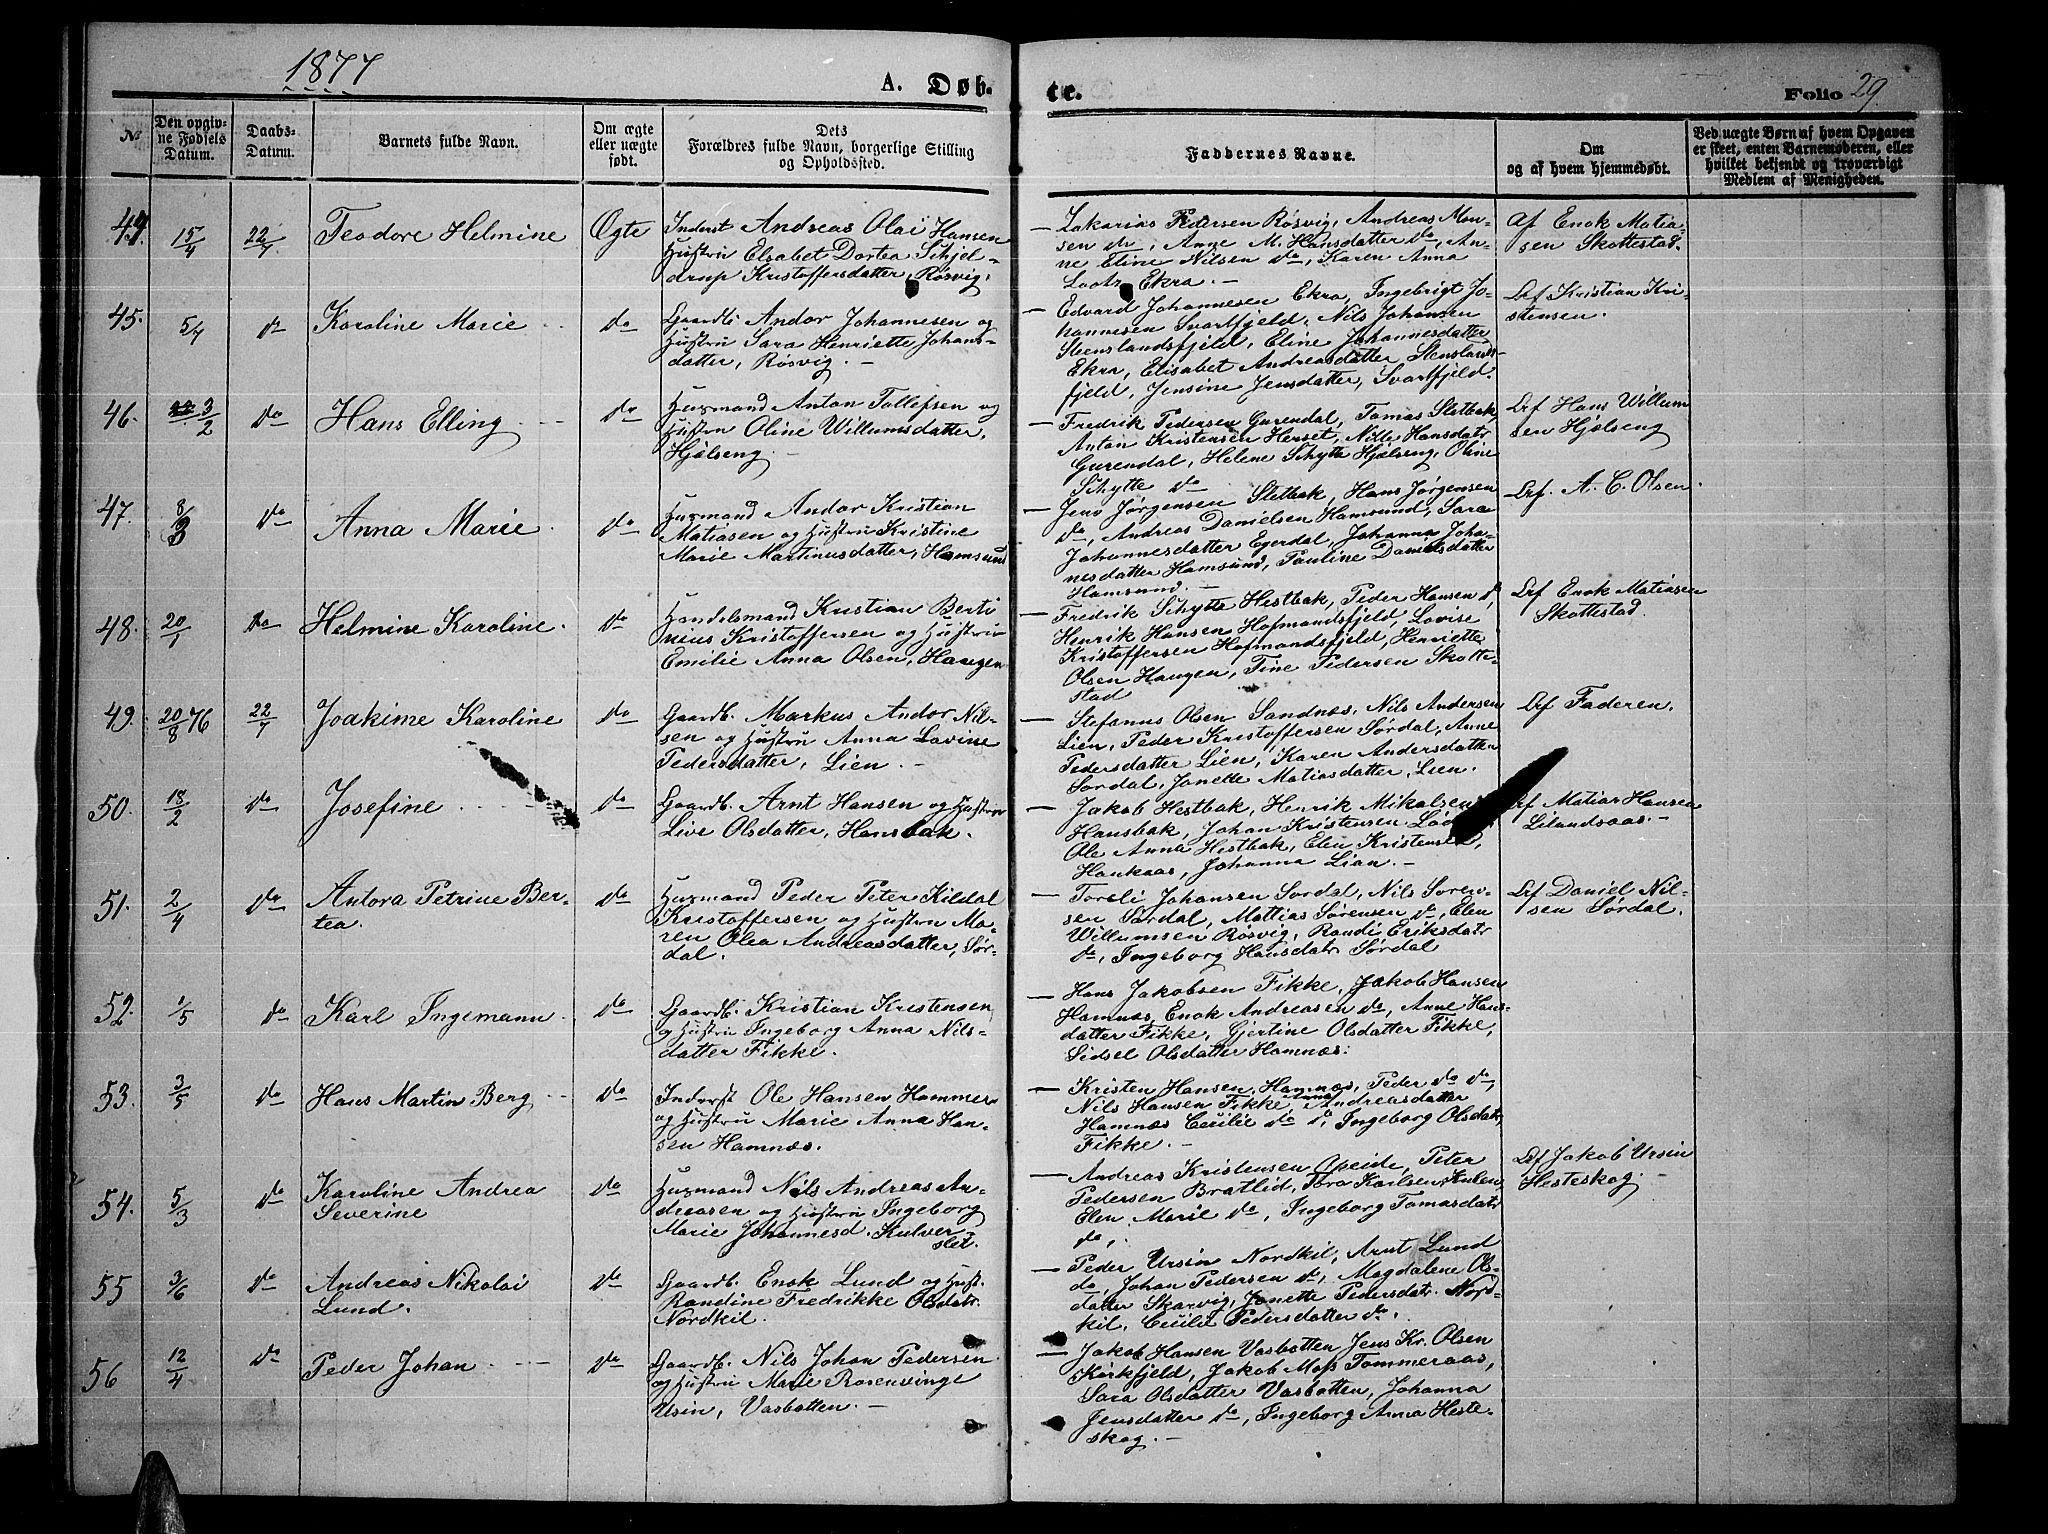 1877
A. Døb-
te.
Folio 29.
No
Den opgiv-
ne Fødsels
Datum.
Daabs-
Datum.
Barnets fulde Navn.
Om ægte
eller uægte
født.
Dets
Forældres fulde Navn, borgerlige Stilling
og Opholdssted.
Faddernes Navne.
Om
og af hvem hjemmedøbt.
Ved uægte Børn af hvem Opgaven
er skeet, enten Barnemoderen, eller
hvilket bekjendt og troværdigt
Medlem af Menigheden.
44. 15/4 22/7 Teodore Helmine Ægte
Inderst Andreas Olai Hansen
Hustru Elsabet Dortea Schjel-
drup Kristoffersdatter, Røsvig.
— Zakarias Pedersen Røsvig, Andreas Mon-
sen do, Anne M. Hansdatter do, An-
ne Eline Nilsen do, Karen Anna
Lootz Ekra. —
Af Enok Matia-
sen Skottestad.
45. 5/4 do Karoline Marie do
Gaardb. Andor Johannesen og
Hustru Sara Henriette Johans-
datter, Røsvig. —
— Edvard Johannesen Ekra, Ingebrigt Jo-
hannesen Svartfjeld, Nils Johansen
Steenslandsfjeld, Eline Johannesdatter
Ekra, Elisabet Andreasdatter, Stenslands-
fjeld, Jensine Jensdatter, Svartfjeld.
Af Kristian Kri-
stensen.
46. 3/2 do Hans Elling do
Husmand Anton Tollefsen og
Hustru Oline Willumsdatter,
Hjelseng. —
— Fredrik Pedersen Gurendal, Tomas Sletbak,
Antón Kristensen Herset, Nille Hansdatr
Gurendal, Helene Schytte Hjelseng, Oline
Schytte do
Af Hans Willum
sen Hjelseng
47. 8/3 do Anna Marie do
Husmand Andor Kristian
Matiasen og Hustru Kristine
Marie Martinusdatter, Hamsund
— Jens Jørgensen Sletbak, Hans Jørgensen
do, Andreas Danielsen Hamsund, Sara
Johannesdatter Egerdal, Johanna Joha-
nesdatter Hamsund, Pauline Danielsdatter
Hamsund. —
Af. A. C. Olsen.
48. 20/1 do Helmine Karoline. do
Handelsmand Kristian Berti
nius Kristoffersen og Hustru
Emilie Anna Olsen, Haugen
— Fredrik Schytte Hestbak, Peder Hansen do,
Henrik Hansen Hofmandsfjeld, Lovise
Kristoffersen Hofmandsfjeld, Henriette
Olsen Haugen, Tine Pedersen Skotte-
stad
Af Enok Matiasen
Skottestad
49. 20/8 76 22/7 Joakime Karoline do
Gaardb. Markus Andor Nil-
sen og Hustru Anna Lovine
Pedersdatter, Lien. —
— Stefanus Olsen Sandnæs, Nils Andersen
Lien, Peder Kristoffersen Sørdal, Anne
Pedersdatter Lien, Karen Andersdatter
Sørdal, Janette Matiasdatter, Lien.
Af Faderen.
50. 18/2 do Josefine do
Gaardb. Arnt Hansen og Hustru
Live Olsdatter, Hansbak.
— Jakob Hestbak, Henrik Mikalsen
Hansbak, Johan Kristensen
Ole Anna Hestbak, Elen Kristensen,
Hankaas, Johanna Lian. —
Af Matias Hansen
51. 2/4 do Antora Petrine Ber-
tea. do
Husmand Peder Peter Kildal
Kristoffersen og Hustru Ma-
ren Olea Andreasdatter, Sør-
dal.
— Toreli Johansen Sørdal, Nils Soren-
sen Sørdal, Mattias Sørensen do, Elen
Willumsen Røsvig, Randi Eriksdatr
do, Ingeborg Hansdatr Sørdal
Af Daniel Nil-
sen Sørdal.
52. 1/5 do Karl Ingemann do
Gaardb. Kristian Kristensen,
og Hustru Ingeborg Anna Nils-
datter Fikke.
— Hans Jakobsen Fikke, Jakob Hansen
Hamnæs, Enok Andreasen do, Anne Hans-
datter Fikke, Gjertine Olsdatter Fikke,
Sidsel Olsdatter Hamnæs.
53. 3/5 do Hans Martin Berg do
Inderst Ole Hansen Hammer
og Hustru Marie Anna Han-
sen Hamnæs.
— Kristen Hansen Hamnæs, Peder do do,
Nils Hansen Fikke, Anna Andreasdatter
Hamnæs Cecilie do do, Ingeborg Olsdatr
Fikke. —
54. 5/3 do Karoline Andrea
Severine do
Husmand Nils Andreas An-
dreasen og Hustru Ingeborg
Marie Johannesd. Kulver-
slet.
— Andreas Kristensen Opeide, Peter
Pedersen Bratlid, Tora Karlsen
Elen Marie do, Ingeborg Tomasdatr
do,.
Af Jakob Ursin
Hesteskog
55 3/6 do Andreas Nikolai
Lund. do
Gaardb. Enok Lund og Hust.
Randine Fredrikke Olsdatr.
Nordkil.
— Peder Ursin Nordkil, Arnt Lund
do, Johan Pedersen do, Magdalene Ols-
datter Skarvig, Janette Pedersdatr. Nord-
kil, Cecilie Pedersdatter do.
56 12/4 do Peder Johan do
Gaardb. Nils Johan Pedersen
og Hustru Marie Rosenvinge
Usin, Vasbotten. —
— Jakob Hansen Vasbotten Jens Kr. Olsen
Kirkfjeld, Jakob Moss Tømmeraas,
Sara Olsdatter Vasbotten, Johanna
Jensdatter do, Ingeborg Anna Heste-
skog. —